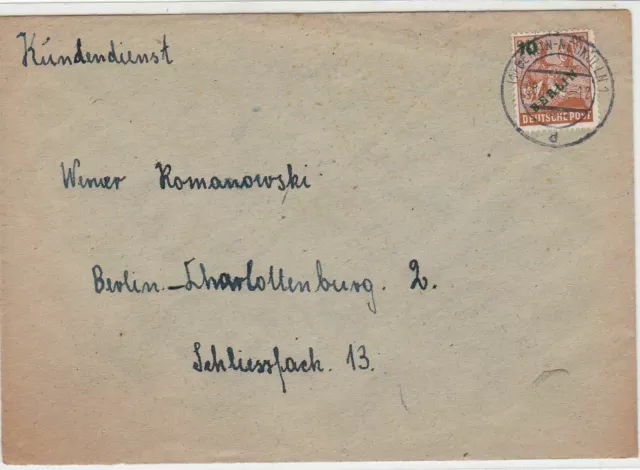 Kundendienst
10
BERLIN
DEUTSCHE POST
Werner Romanowski
Berlin-Charlottenburg. 2.
Schliessfach. 13.